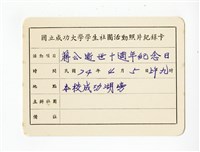 國立成功大學學生社團活動照片紀錄卡
活動項目 蔣公逝世十週年紀念日
時間 民國 74 年 4 月 5 日
地點 本校成功湖畔
主辦社團